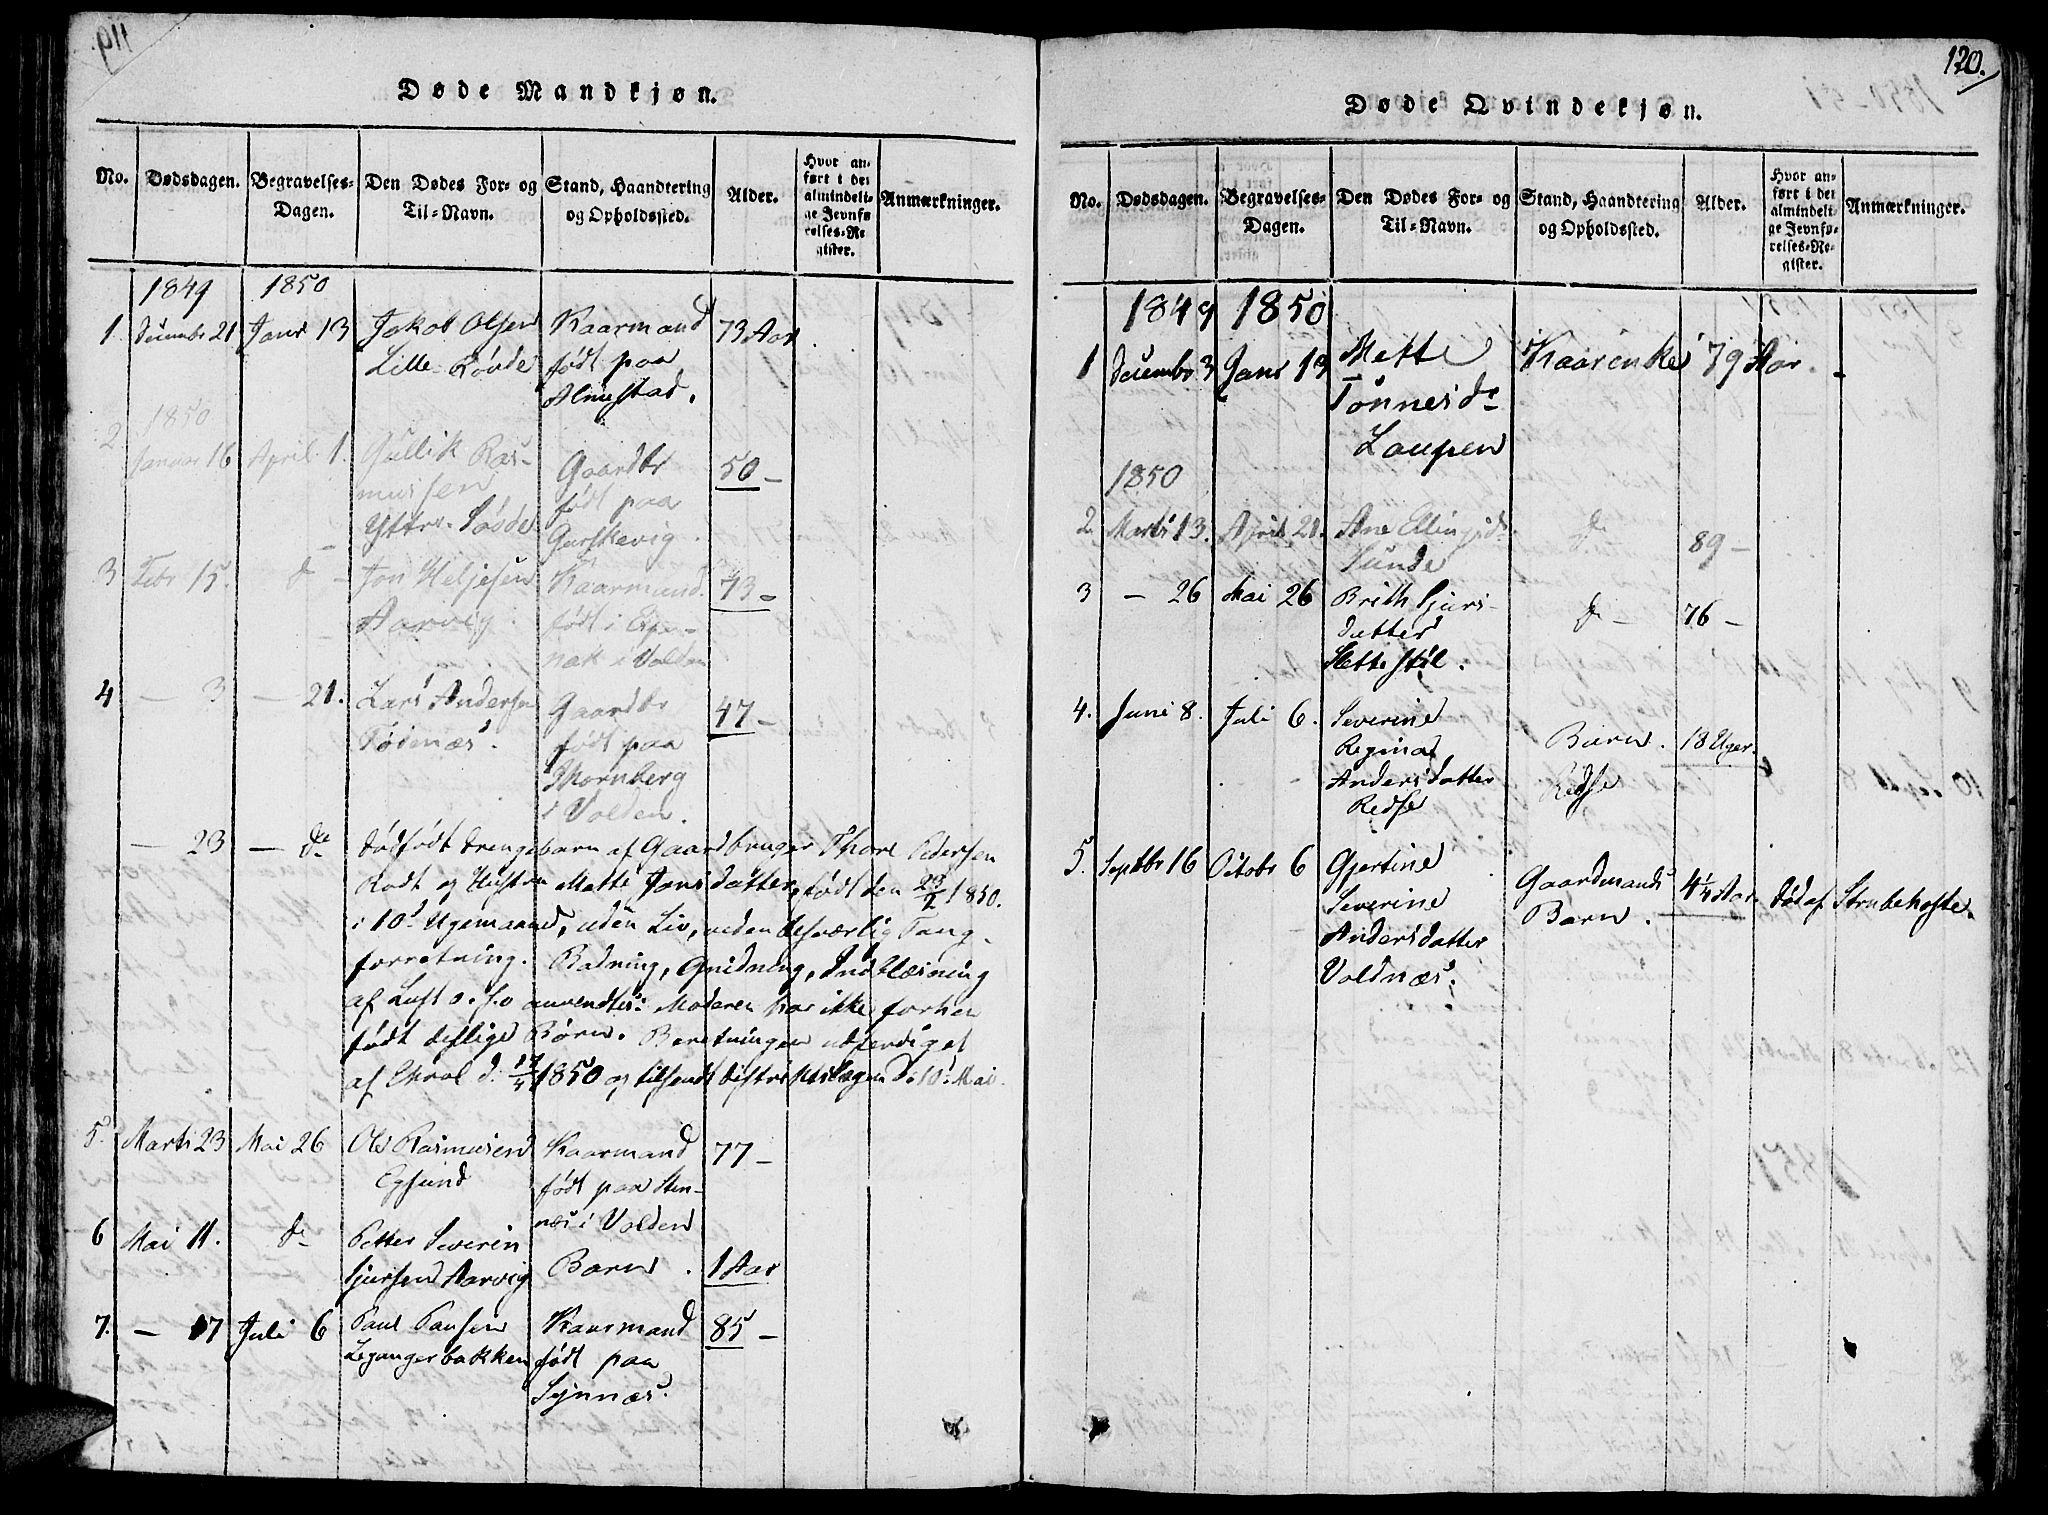 119.
Døde Mandkjøn.
No.
Dødsdagen.
Begravelses-
Dagen.
Den Dødes For- og
Til-Navn.
Stand, Haandtering
og Opholdssted.
Alder.
Hvor an-
ført i det
almindeli-
ge Jevnfø
relses-Re
gister.
Anmærkninger.
1849 1850
1. Decembr 21 Janr 13 Jakob Olsen Kaarmand 73 Aar
Lille-Rovde født paa
Almestad.
1850
2 Januar 16 April 1. Gullik Ras-
mussen Gaardbr 50 -
Yttre- født paa
Gurskevig.
3 Febr 15. d° - Jon Heljesen Kaarmand 73 -
Aarvig. født i
i Volden
4 - 3 - 21. Lars Andersen Gaardbr 47 -
Tødenæs. født paa
Thornberg
i Volden.
- 23 - d° dødfødt Drengebarn af Gaardbruger Thore Pedersen
og Hustru Mette Jonsdatter, født den 23/2 1850.
i 10d Ugemaaned, uden Liv, uden besværlig Tang-
forretning. Badning, Gnidning, Indblæsning
af Luft o. s. v anvendtes: Moderen har ikke forhen
født deslige Børn. Beretningen udferdiget
af d. 1850 og tilsendt Distriktslægen d. 10 Mai.
5. Marts 23 Mai 26 Ole Rasmusen Kaarmand 77 -
Egsund født paa Sten-
næs i Volden
6 Mai 11. d° Petter Severin
Sjursen Aarvig Barn. 1 Aar
7. - 17 Juli 6 Paul Paulsen Kaarmand 85 -
Leganger bakken født paa
Synnæs.
120.
Døde Qvindekjøn.
No.
Dødsdagen.
Begravelses-
Dagen.
Den Dødes For- og
Til-Navn.
Stand, Haandtering
og Opholdssted.
Alder.
Hvor an-
ført i det
almindeli-
ge Jevnfø-
relses-Re-
gister.
Anmærkninger.
1849 1850
1 Decembr 3 Janr 13 Mette Kaarenke 79 Aar. -
Tønnesdr
Laupen
1850
2. Marts 13. April 21. Ane Ellingsdr d° 89 -
Sunde
3 - 26 Mai 26 Brith Sjurs- d° - 76 -
datter
Slettestøl.
4. Juni 8. Juli 6. Severine
Regina Barn. 18 Uger.
Andersdatter Redse
Redse
5. Septbr 16 Octobr 6 Gjertine Gaardmands 4 1/4 Aar. død af Strubehoste.
Severine Barn.
Andersdatter
Voldnæs.